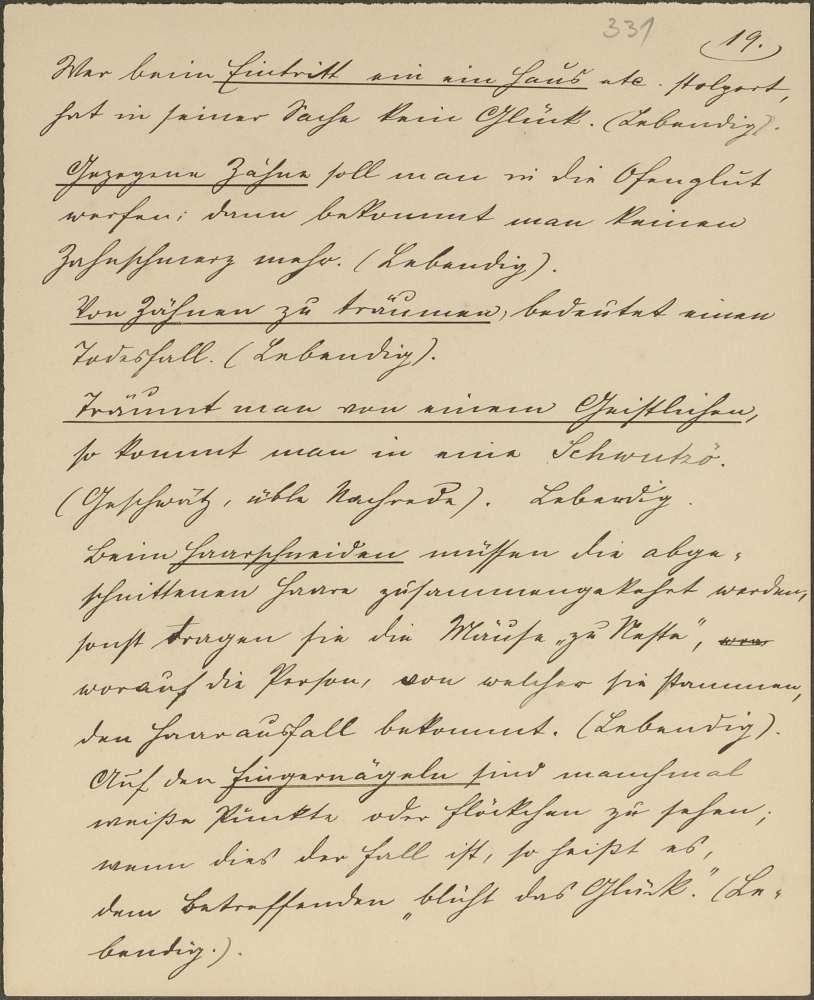 331
19.
Wer beim Eintritt ein ein Haus etc. stolpert,
hat in seiner Sache kein Glück. (Lebendig).
Gezogene Zähne soll man in die Ofenglut
werfen; dann bekommt man keinen
Zahnschmerz mehr. (Lebendig).
Von Zähnen zu träumen, bedeutet einen
Todesfall. (Lebendig).
Träumt man von einem Geistlichen,
so kommt man in eine Schwutzö.
(Geschwätz, üble Nachrede). Lebendig.
Beim Haarschneiden müssen die abge-
schnittenen Haare zusammengekehrt werden,
sonst tragen sie die Mäuse „zu Neste", was
worauf die Person, von welcher sie stammen,
den Haarausfall bekommt. (Lebendig).
Auf den Fingernägeln sind manchmal
weiße Punkte oder Flöckchen zu sehen;
wenn dies der Fall ist, so heißt es,
dem Betreffenden „blüht das Glück." (Le-
bendig.).